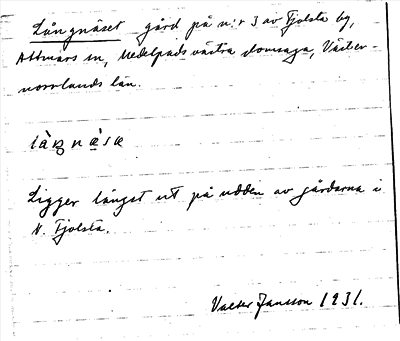 Långnäset gård på n:r 3 av Fjolsta by,
Attmars sn, Medelpads västra domsaga, Väster-
norrlands län.
làŋnæ̀sæ
Ligger längst ut på udden av gårdarna i
N. Fjolsta.
Valter Jansson 1931.